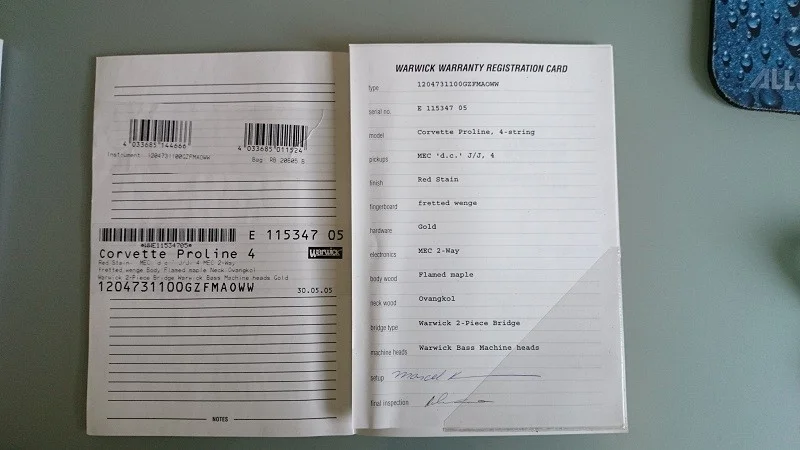 4 033685 144666
4 033685 011524
Instrument: 1204731100GZFMAOWW
Bag: RB 20505 B
E 115347 05
*WWE11534705*
Corvette Proline 4
Warwick
Red Stain MEC d.c. J/J, 4 MEC 2-Way
fretted wenge Body Flamed maple Neck Ovangkol
Warwick 2-Piece Bridge Warwick Bass Machine heads Gold
1204731100GZFMAOWW
30.05.05
NOTES
WARWICK WARRANTY REGISTRATION CARD
type 1204731100GZFMAOWW
serial no. E 115347 05
model Corvette Proline, 4-string
pickups MEC 'd.c.' J/J, 4
finish Red Stain
fingerboard fretted wenge
hardware Gold
electronics MEC 2-Way
body wood Flamed maple
neck wood Ovangkol
bridge type Warwick 2-Piece Bridge
machine heads Warwick Bass Machine heads
setup Marcel K
final inspection